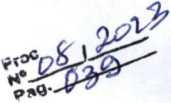 Proc
Nº 08, 2023
Pag. 039